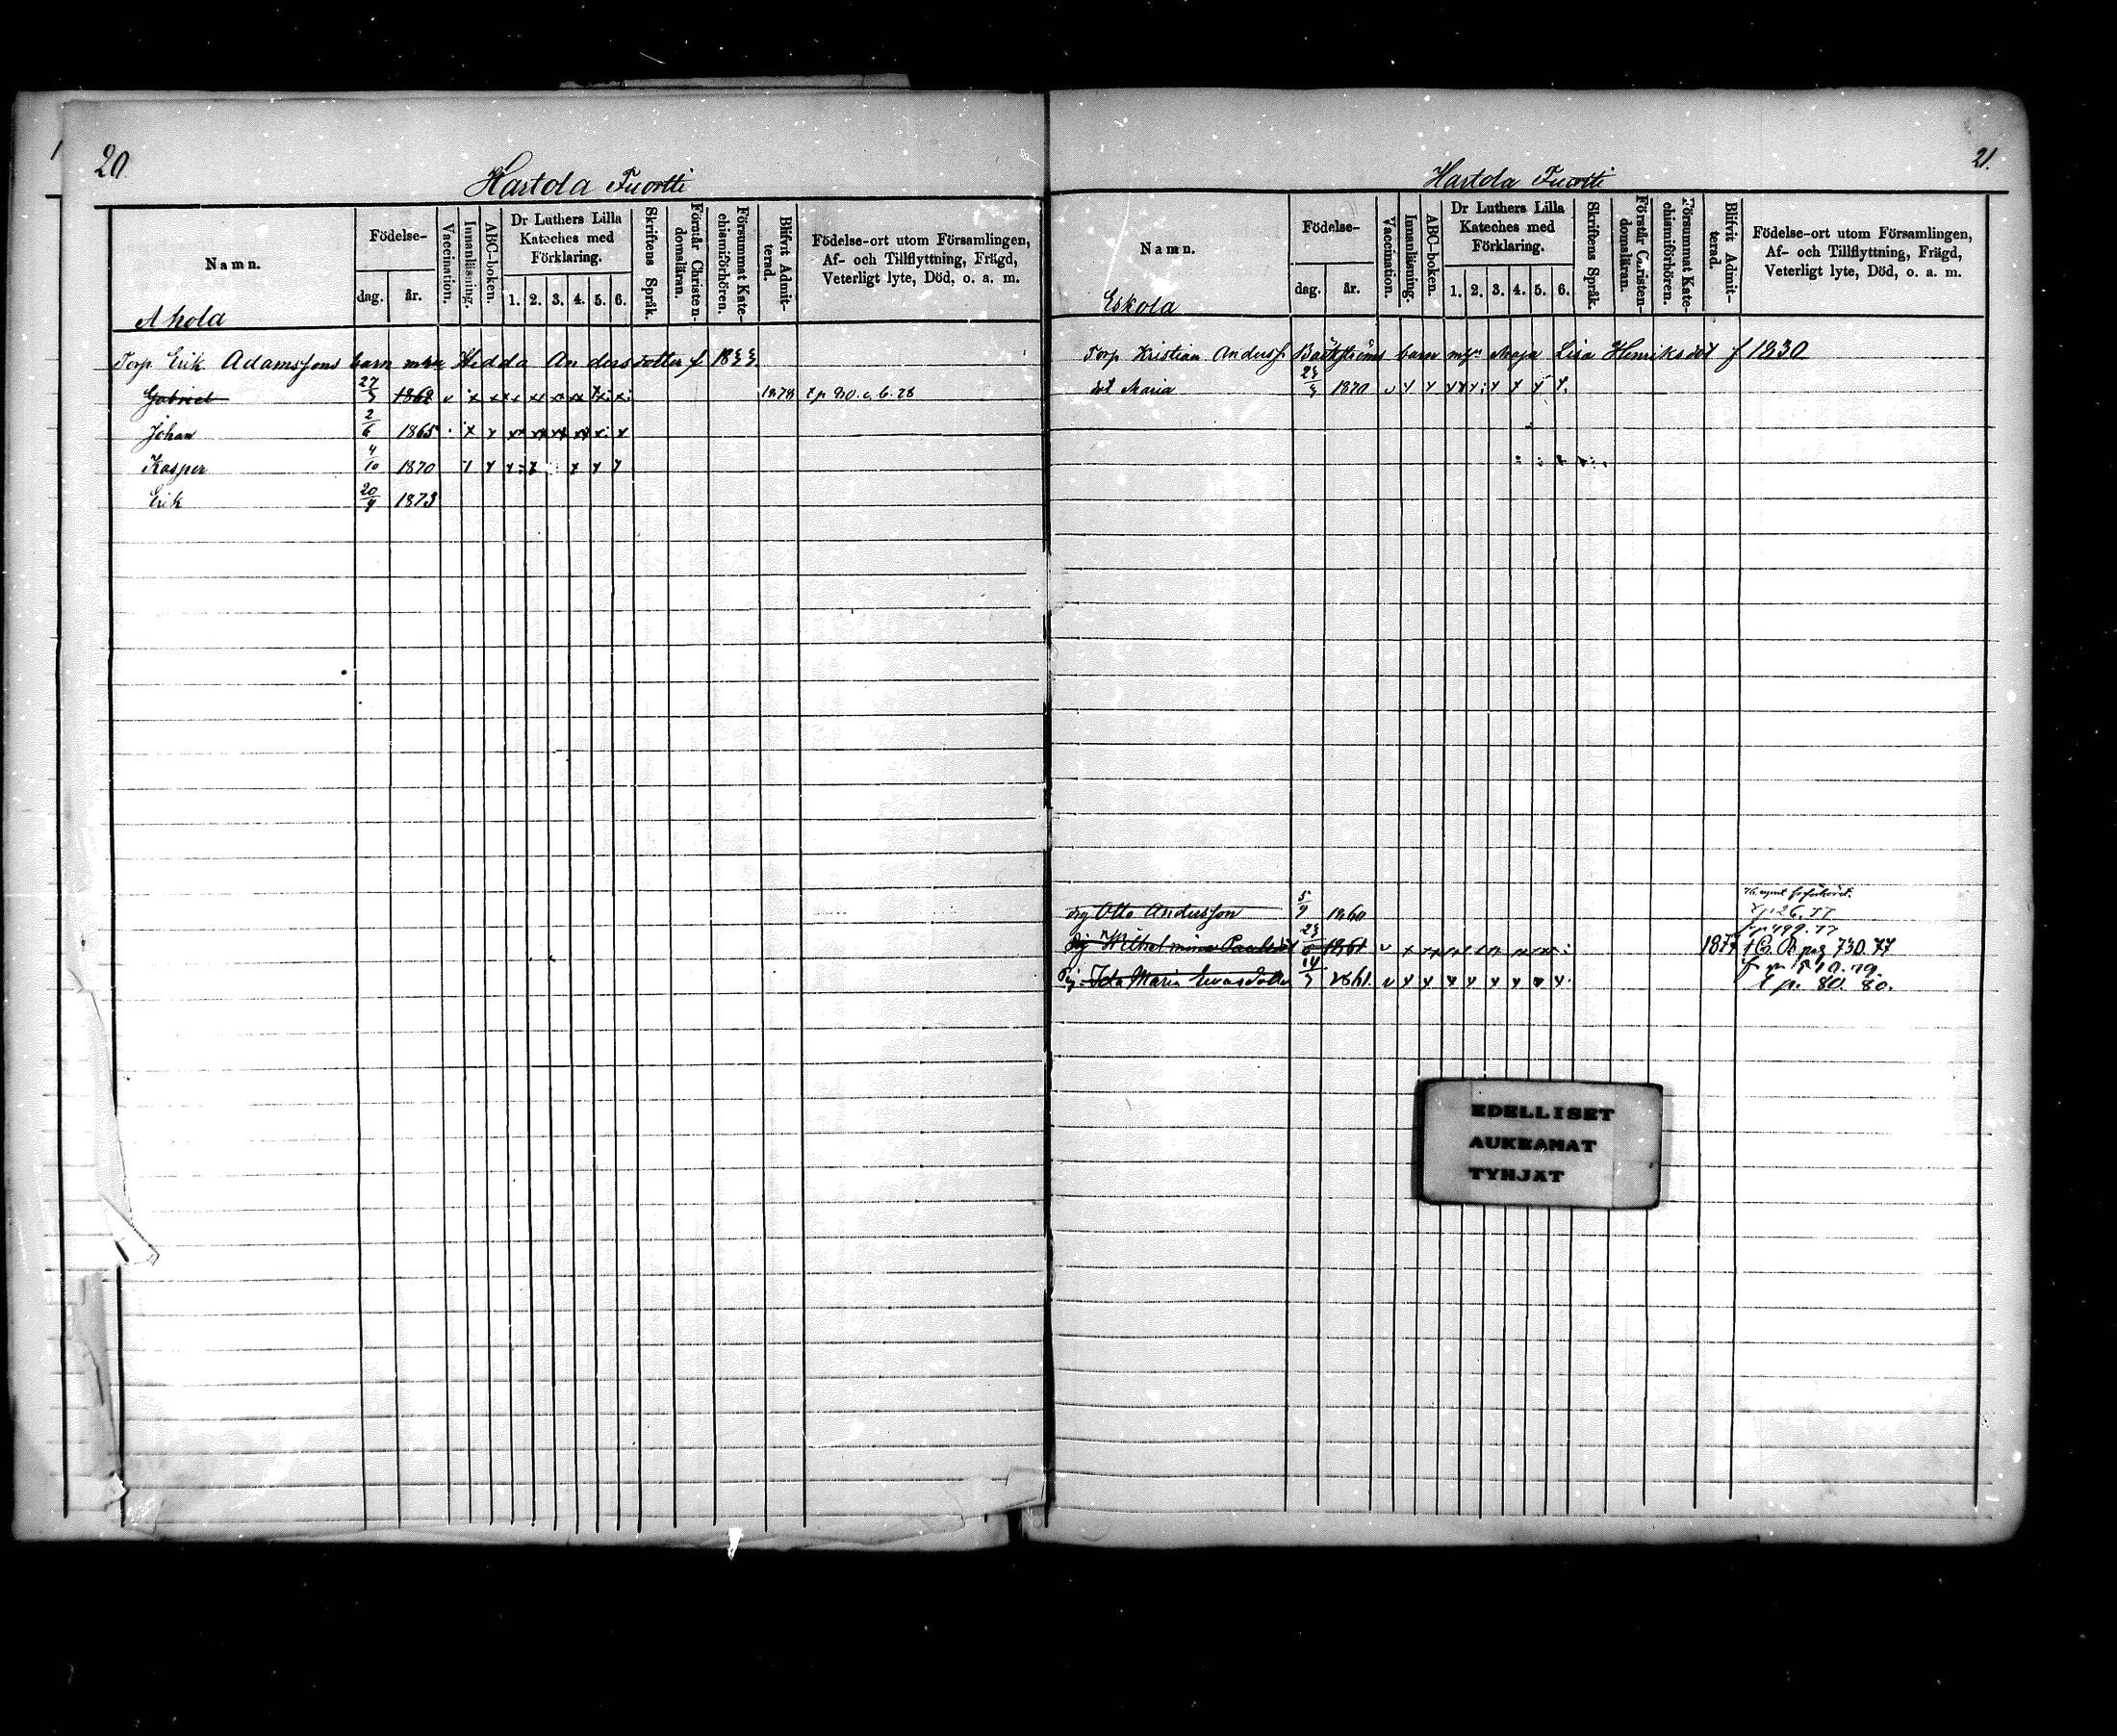 20
Hartola Tuortti
Namn.
Födelse-
dag.
år.
Vaccination.
Innanläsning.
ABC-boken.
Dr Luthers Lilla Kateches med Förklaring.
1. 2. 3. 4. 5. 6.
Skriftens Språk.
Förstår Christendomsläran.
Försummat Katechismiförhören.
Blifvit Admitterad.
Födelse-ort utom Församlingen,
Af- och Tillflyttning, Frägd,
Veterligt lyte, Död, o. a. m.
Ahola
Torp. Erik Adamssons barn m. Hedda Andersdotter f 1833
Gabriel 27/3 1862 1878
Johan 2/6 1865
Kasper 4/10 1870
Erik 20/9 1873
21.
Hartola Tuortti
Namn.
Födelse-
dag.
år.
Vaccination.
Innanläsning.
ABC-boken.
Dr Luthers Lilla Kateches med Förklaring.
1. 2. 3. 4. 5. 6.
Skriftens Språk.
Förstår Christendomsläran.
Försummat Katechismiförhören.
Blifvit Admitterad.
Födelse-ort utom Församlingen,
Af- och Tillflyttning, Frägd,
Veterligt lyte, Död, o. a. m.
Eskola
Torp Kristian Anderss. barn Maja Lisa Henriksdot f 1830
dot Maria 1870
drg Otto Andersson 5/9 1860
t p 26. 77
f p 499. 77
Pig Wilhelmina Paulsdot 1861 1877 pag 730. 77
f p 510. 79.
Pig Ida Maria Evasdotter 14/3 1861 t p. 80. 80.
EDELLISET
AUKEAMAT
TYHJÄT